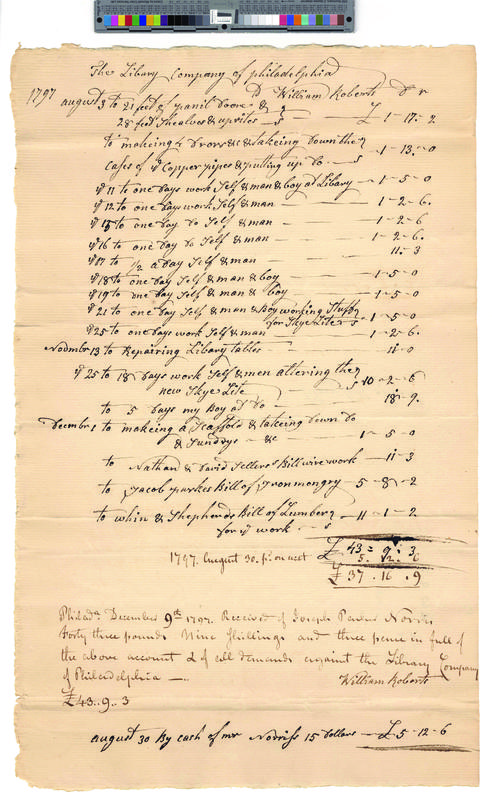 The Libary Company of philadelphia
To William Roberts Dr
1797 august 3 to 21 feet of panil Doore &
28 feet Shealves & uprites — £ 1 - 17 - 2
to makeing 4 Drors &c & takeing Down the
Cases of ye Copper pipes & putting up Do — 1 - 13 - 0
ye 11 to one Days work Self & man & boy at Libary — 1 - 5 - 0
ye 12 to one Days work Self & man — 1 - 2 - 6
ye 15 to one Day Do Self & man — 1 - 2 - 6
ye 16 to one Day Do Self & man — 1 - 2 - 6
ye 17 to 1/2 a Day Self & man — 11 - 3
ye 18 to one Day Self & man & boy — 1 - 5 - 0
ye 19 to one Day Self & man & boy — 1 - 5 - 0
ye 21 to one Day Self & man & Boy working Stuff
for Skye Lite — 1 - 5 - 0
ye 25 to one Days work Self & man — 1 - 2 - 6
Novmbr 13 to Repairing Libary tables — 11 - 0
ye 25 to 18 Days work Self & men altering the
new Skye Lite — 10 - 2 - 6
to 5 Days my Boy at Do — 18 - 9
Decmbr 1 to makeing a Scaffold & takeing Down Do
& Sundrys - &c — 1 - 5 - 0
to Nathan & David Sellers Bill wire work — 11 - 3
to Jacob parkes Bill of Ironmongry — 5 - 8 - 2
to whin & Shepherds Bill of Lumber
for ye work — 11 - 1 - 2
£ 43 = 9 : 3
1797. August 30. pd on acct 5 . 12 . 6
£ 37 . 16 . 9
Philada December 9th 1797. Received of Joseph Parker Norris
Forty three pounds Nine Shillings and three pence in full of
the above account & of all demands against the Library Company
of Philadelphia —
William Roberts
£43 .. 9 .. 3
august 30 By cash of mr Norriss 15 Dollars — £ 5 - 12 - 6